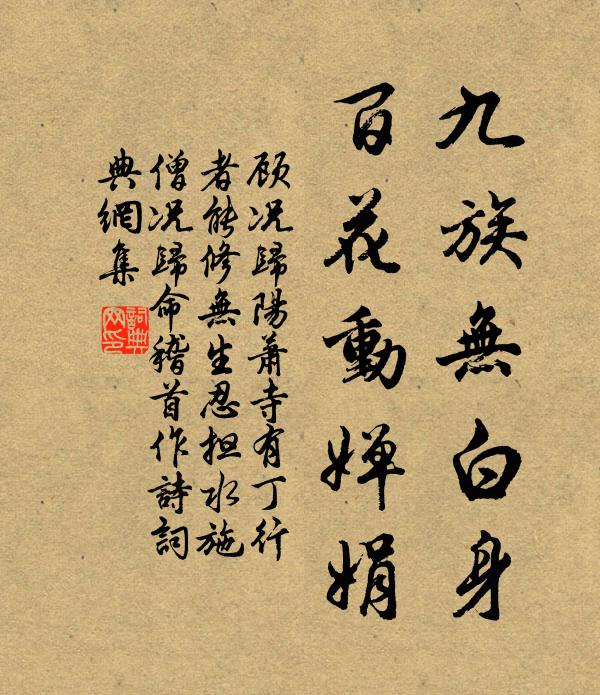 九族無白身
百花動嬋娟
顧况歸陽蕭寺有丁行
者能修無生忍担水施
僧况歸命稽首作詩詞
典網集
詞典
网印